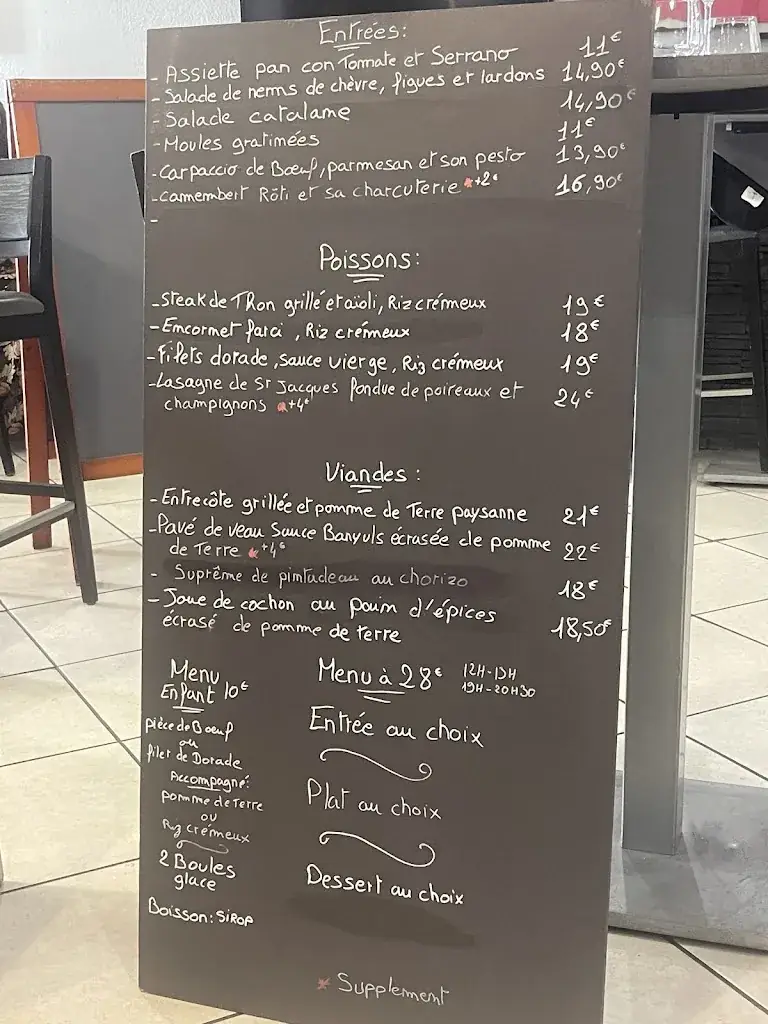 Entrées:
- Assiette pan con Tomate et Serrano 11€
- Salade de nems de chèvre, figues et lardons 14,90€
- Salade catalane 14,90€
- Moules gratinées 11€
- Carpaccio de Bœuf, parmesan et son pesto 13,90€
- Camembert Rôti et sa charcuterie *+2€ 16,90€
-
Poissons:
- Steak de Thon grillé et aïoli, Riz crémeux 19€
- Encornet farci, Riz crémeux 18€
- Filets dorade, sauce vierge, Riz crémeux 19€
- Lasagne de St Jacques fondue de poireaux et
champignons *+4€ 24€
Viandes:
- Entrecôte grillée et pomme de Terre paysanne 21€
- Pavé de veau Sauce Banyuls écrasée de pomme
de Terre *+4€ 22€
- Suprême de pintadeau au chorizo 18€
- Joue de cochon au pain d'épices
écrasé de pomme de terre 18,50€
Menu
Enfant 10€
pièce de Bœuf
ou
filet de Dorade
Accompagné:
pomme de Terre
ou
Riz crémeux
2 Boules
glace
Boisson: SIROP
Menu à 28€
12H-13H
19H-20H30
Entrée au choix
Plat au choix
Dessert au choix
* Supplement